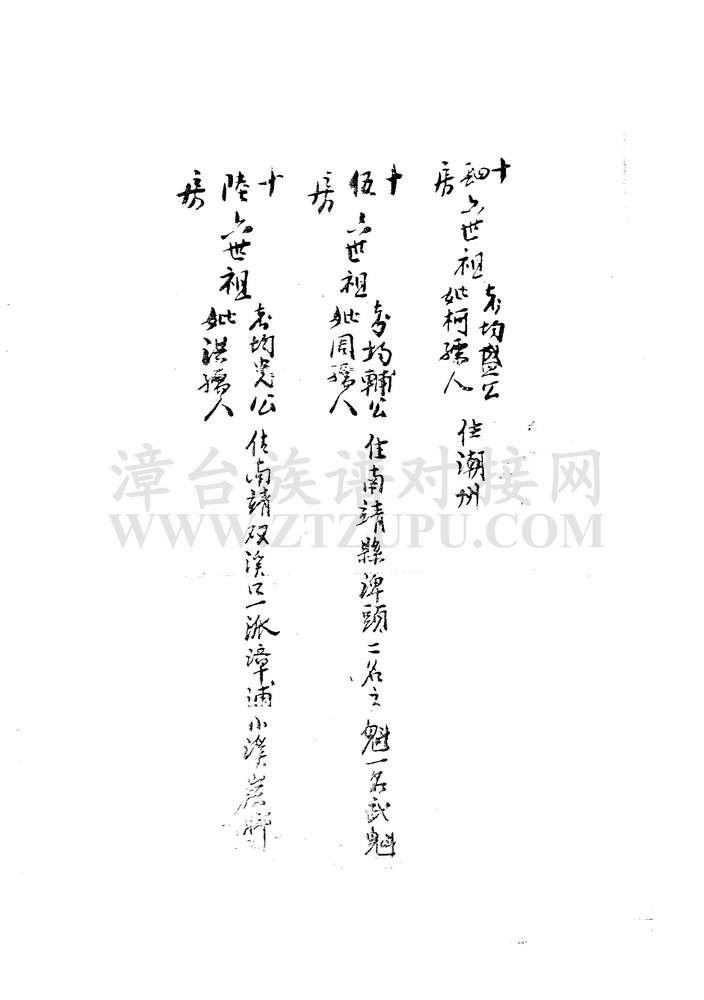 十
房
六世祖
均盛公
妣柯孺人
住潮州
十
伍
房
六世祖
均輔公
妣周孺人
住南靖縣 頭二名文魁一名武魁
十
陸
房
六世祖
均 公
妣洪孺人
住南靖双溪口一派漳浦小溪 
漳台族谱对接网
WWW.ZTZUPU.COM